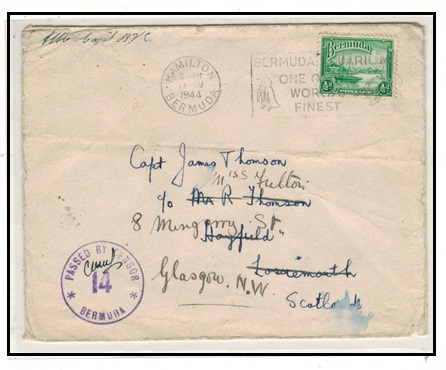 HAMILTON
PM
1944
BERMUDA
BERMUDA AQUARIUM
ONE OF
WORLD
FINEST
Bermuda
POSTAGE
Capt James Thomson
Miss Fulton
c/o Mr R Thomson
8 Mingarry St.
Hayfield
Glasgow. N.W.
Lossiemouth
Scotland
PASSED BY CENSOR
14
BERMUDA